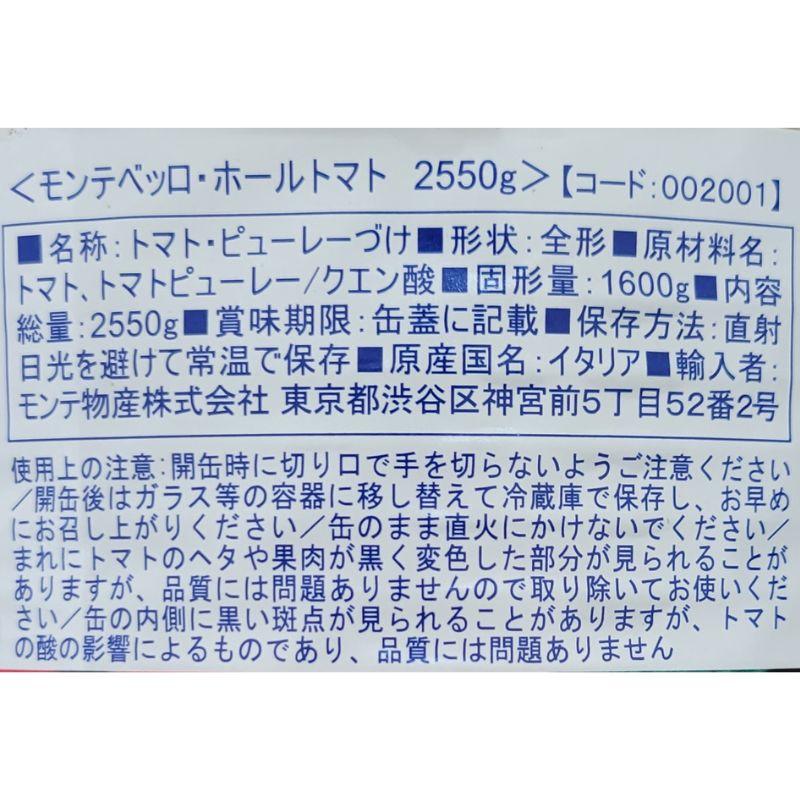 <モンテベッロ・ホールトマト 2550g>【コード:002001】
■名称:トマト・ピューレーづけ■形状:全形■原材料名:
トマト、トマトピューレー/クエン酸■固形量:1600g■内容
総量:2550g■賞味期限:缶蓋に記載■保存方法:直射
日光を避けて常温で保存■原産国名:イタリア■輸入者:
モンテ物産株式会社 東京都渋谷区神宮前5丁目52番2号
使用上の注意:開缶時に切り口で手を切らないようご注意ください
/開缶後はガラス等の容器に移し替えて冷蔵庫で保存し、お早め
にお召し上がりください/缶のまま直火にかけないでください/
まれにトマトのヘタや果肉が黒く変色した部分が見られることが
ありますが、品質には問題ありませんので取り除いてお使いくだ
さい/缶の内側に黒い斑点が見られることがありますが、トマト
の酸の影響によるものであり、品質には問題ありません